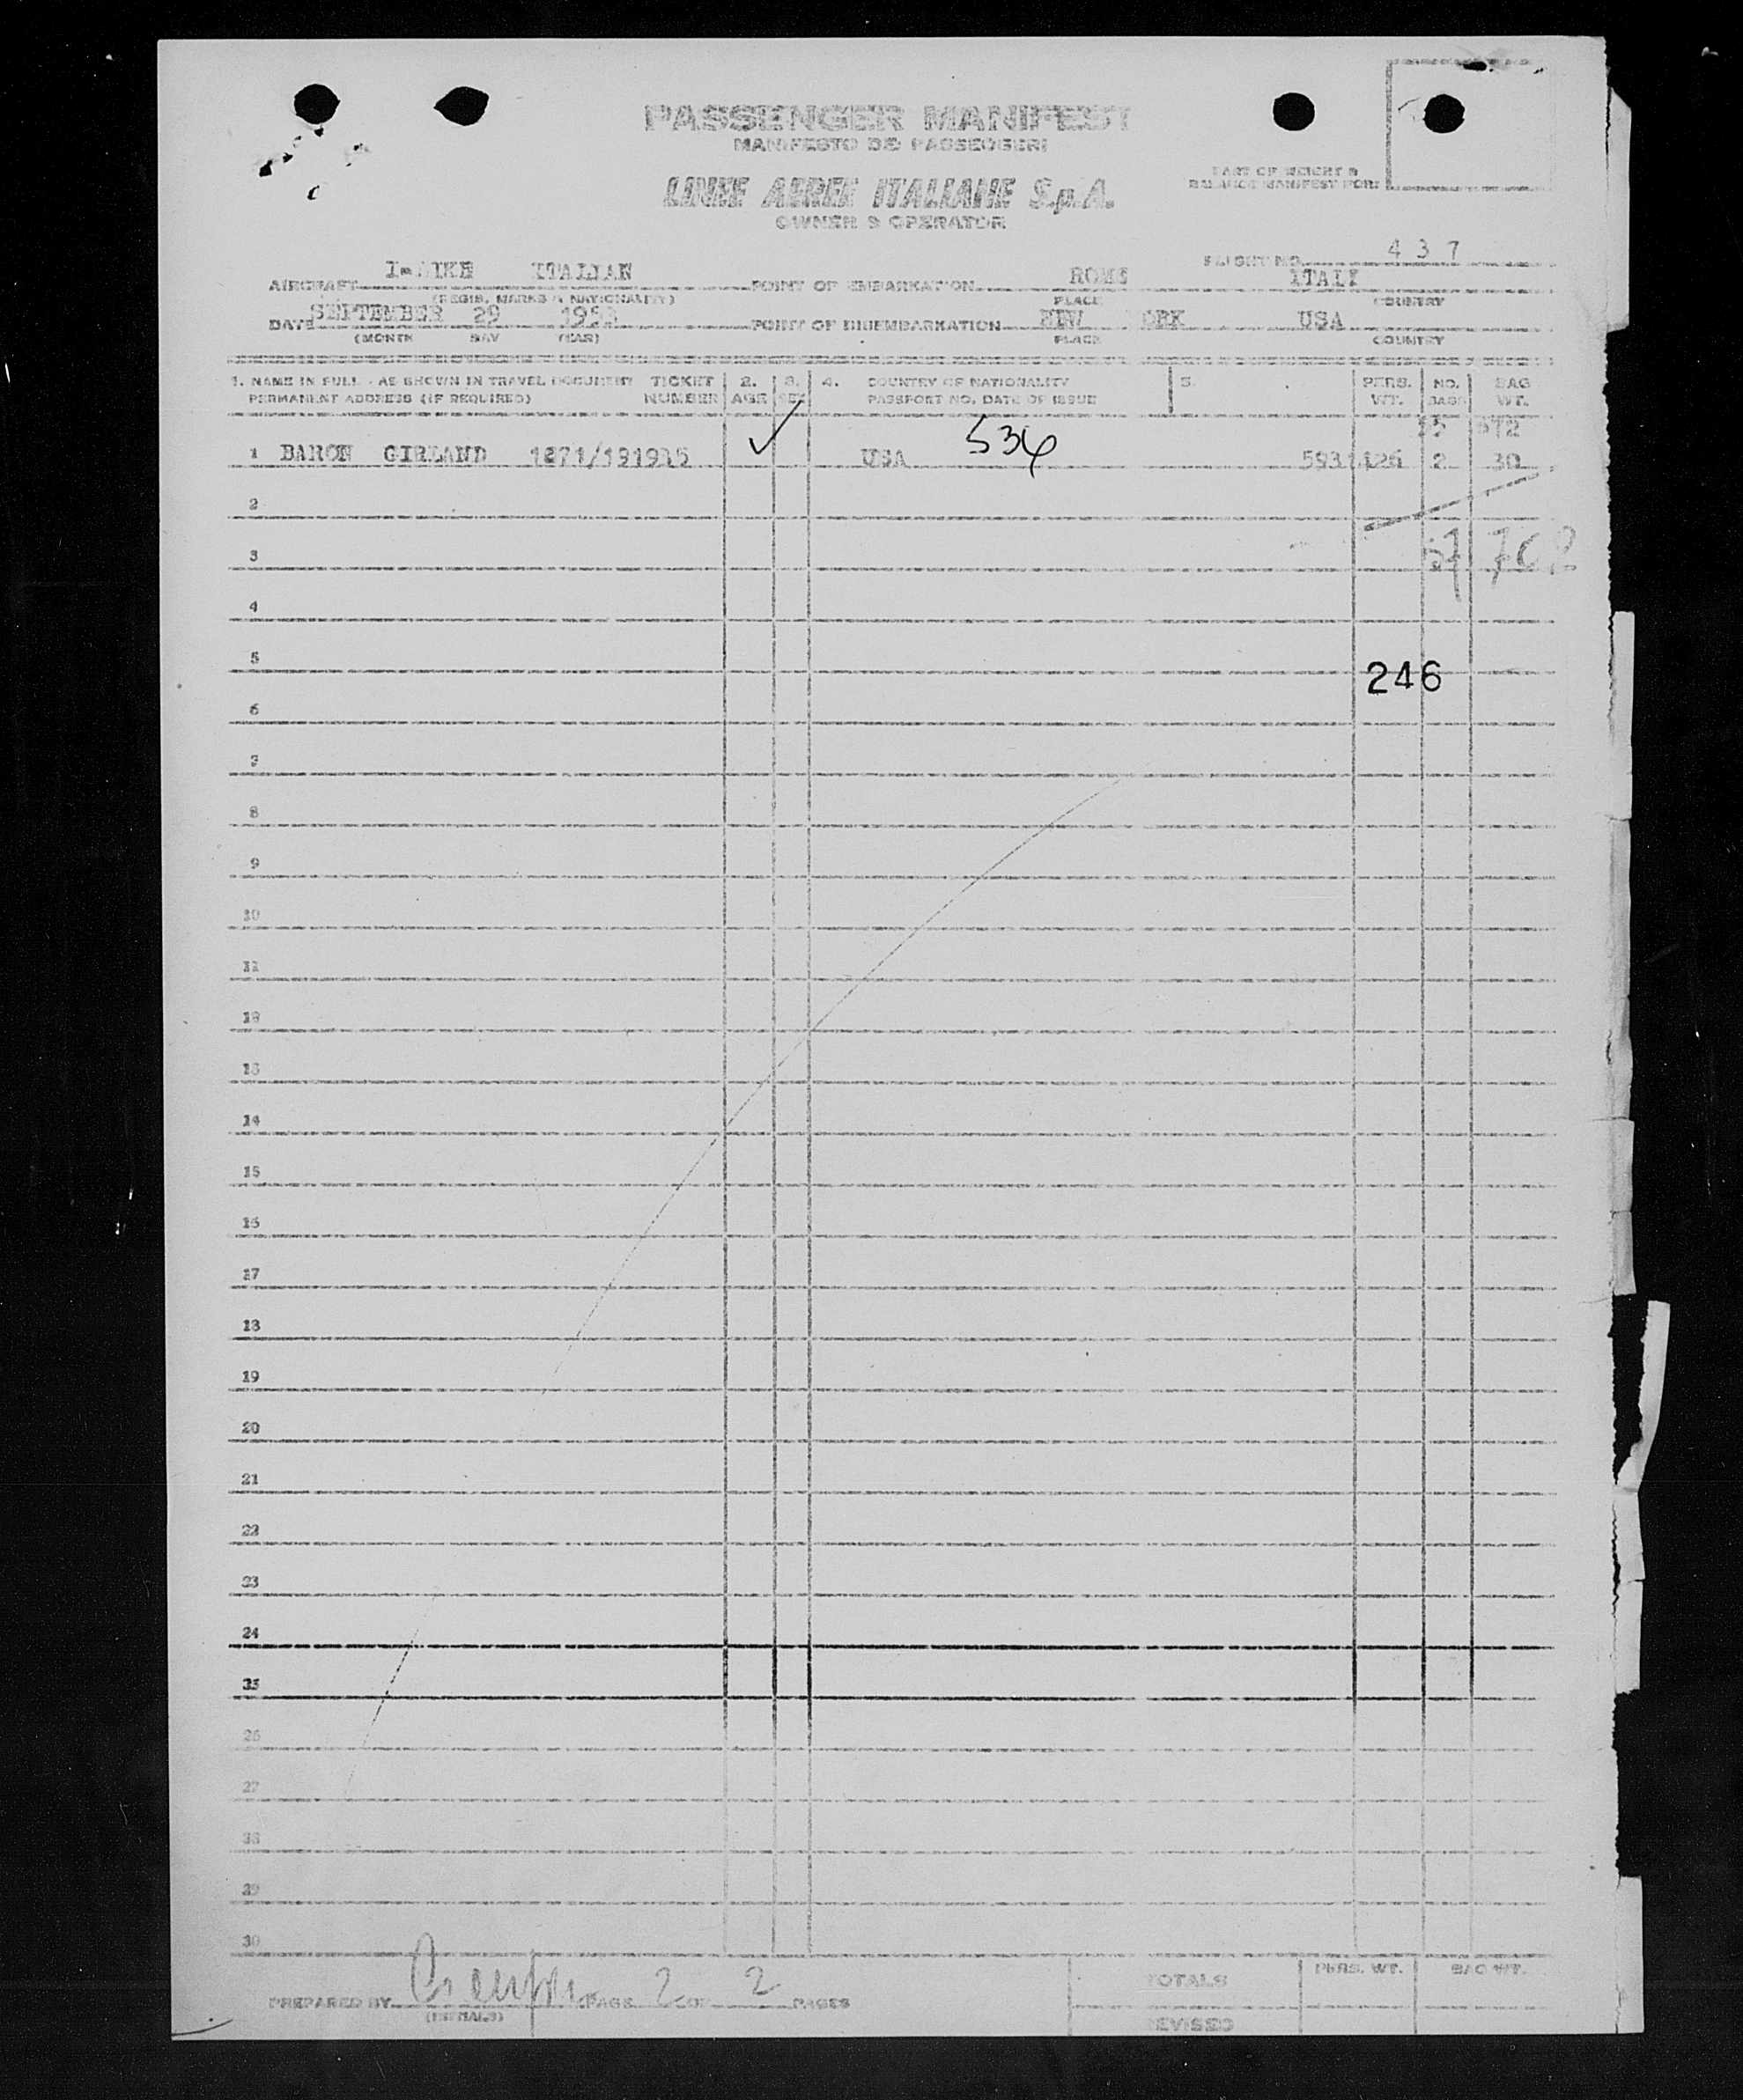 PASSENGER MANIFEST
MANIFESTO DEI PASSEGGERI
PART OF WEIGHT &
BALANCE MANIFEST FOR:
LINEE AEREE ITALIANE S.p.A.
OWNER & OPERATOR
FLIGHT NO. 4 3 7
AIRCRAFT ITALIAN POINT OF EMBARKATION ROME ITALY
(REGIS. MARKS & NATIONALITY) PLACE COUNTRY
DATE SEPTEMBER 29 POINT OF DISEMBARKATION NEW ORK USA
(MONTH DAY YEAR) PLACE COUNTRY
1. NAME IN FULL - AS SHOWN IN TRAVEL DOCUMENT TICKET 2. 3. 4. COUNTRY OF NATIONALITY 5. PERS. NO. BAG
PERMANENT ADDRESS (IF REQUIRED) NUMBER AGE SEX PASSPORT NO. DATE OF ISSUE WT. BAGS WT.
55 672
1 BARON GIRLAND USA 536 126 2 30
2
3 57 702
4
5
246
6
7
8
9
10
11
12
13
14
15
16
17
18
19
20
21
22
23
24
25
26
27
28
29
30
PREPARED BY PAGE 2 OF 2 PAGES TOTALS PERS. WT. BAG WT.
(INITIALS) REVISED